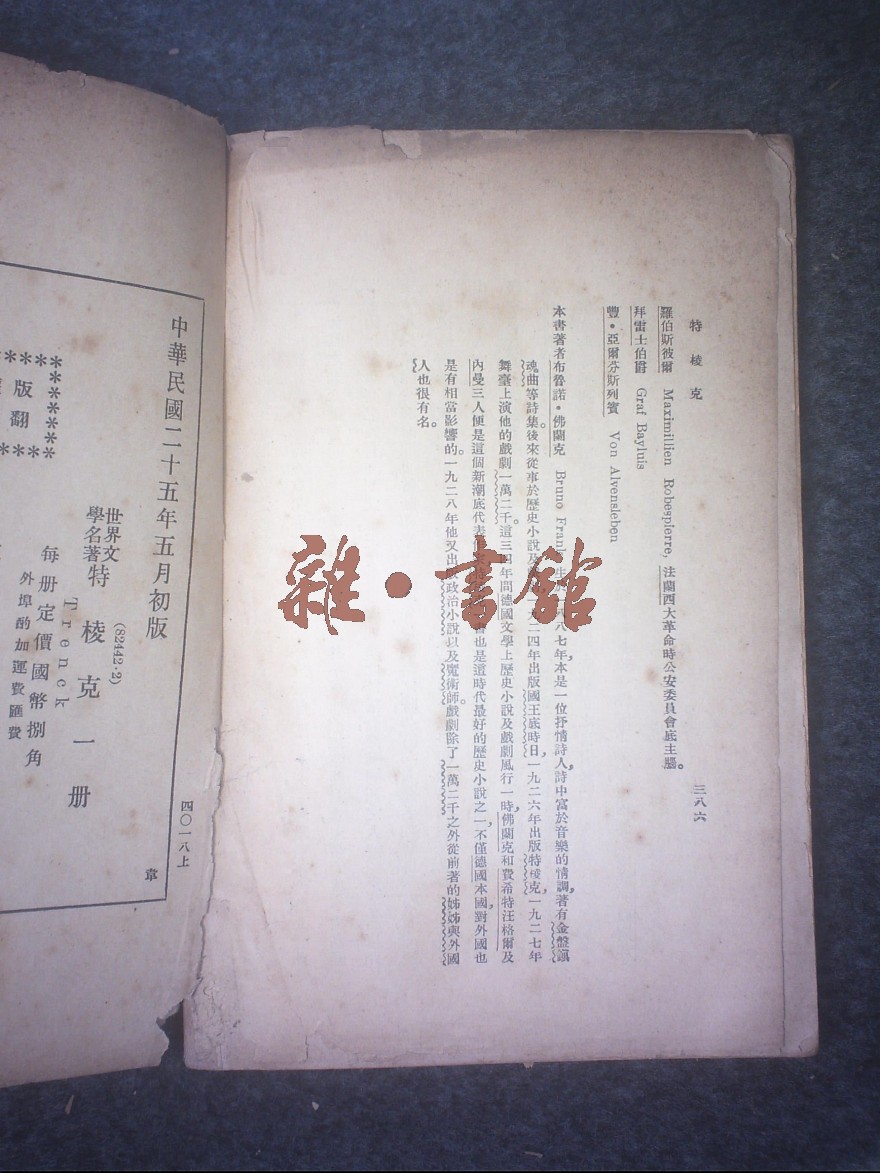 特棱克
三八六
羅伯斯彼爾 Maximillien Robespierre, 法蘭西大革命時公安委員會底主腦。
拜雷士伯爵 Graf Bayluis
豐・亞爾芬斯列賓 Von Alvensleben
本書著者布魯諾・佛蘭克 Bruno Frank 八七年,本是一位抒情詩人,詩中富於音樂的情調,著有金盤鎭
魂曲等詩集。後來從事於歷史小說及 九二四年出版國王底時日,一九二六年出版特棱克,一九二七年
舞臺上演他的戲劇一萬二千。這三四年間德國文學上歷史小說及戲劇風行一時,佛蘭克和費希特汪格爾及
內曼三人便是這個新潮底代表 也是這時代最好的歷史小說之一,不僅德國本國,對外國也
是有相當影響的。一九二八年他又出版政治小說以及魔術師。戲劇除了一萬二千之外從前著的姊姊與外國
人也很有名。
中華民國二十五年五月初版
四〇一八上
世界文
學名著
特棱克一册
(82442·2)
Trenck
每册定價國幣捌角
外埠酌加運費匯費
版
翻
章
雜・書館